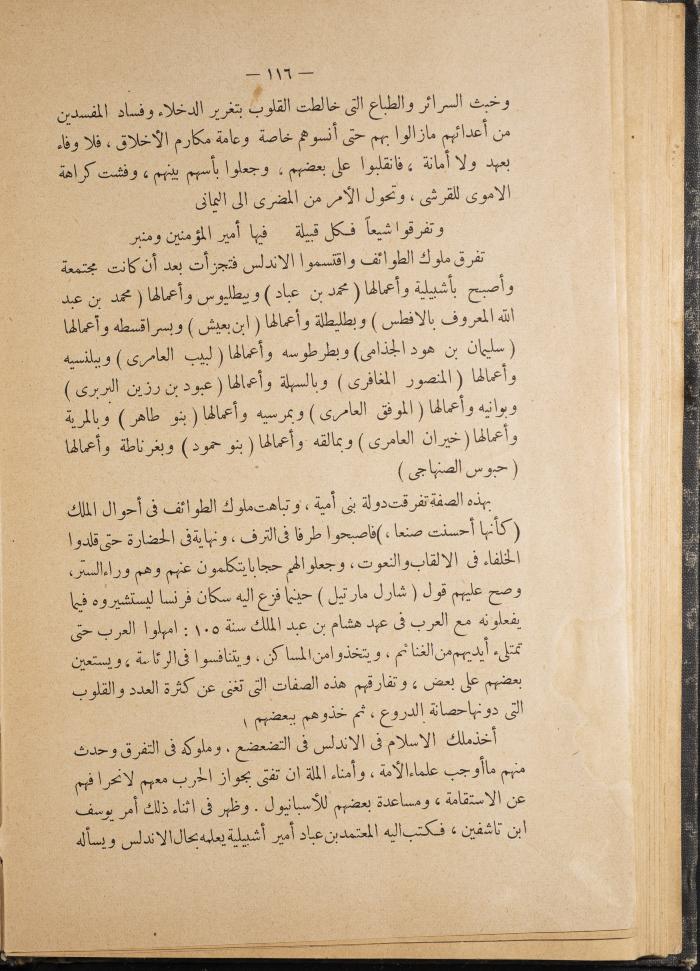 — ١١٦ —
وخبث السرائر والطباع التى خالطت القلوب بتغرير الدخلاء وفساد المفسدين
من أعدائهم مازالوا بهم حتى أنسوهم خاصة وعامة مكارم الأخلاق ، فلا وفاء
بعهد ولا أمانة ، فانقلبوا على بعضهم ، وجعلوا بأسهم بينهم ، وفشت كراهة
الاموى للقرشى ، وتحول الأمر من المضرى الى اليمانى
وتفرقوا شيعاً فكل قبيلة فيها أمير المؤمنين ومنبر
تفرق ملوك الطوائف واقتسموا الاندلس فتجزأت بعد أن كانت مجتمعة
وأصبح بأشبيلية وأعمالها ( محمد بن عباد ) وببطليوس وأعمالها ( محمد بن عبد
الله المعروف بالافطس ) وبطليطلة وأعمالها ( ابن بعيش ) وبسراقسطه وأعمالها
( سليمان بن هود الجذامى ) وبطرطوسه وأعمالها ( لبيب العامرى ) وببلنسيه
وأعمالها ( المنصور المغافرى ) وبالسهلة وأعمالها ( عبود بن رزين البربرى )
وبوانيه وأعمالها ( الموفق العامرى ) وبمرسيه وأعمالها ( بنو طاهر ) وبالمرية
وأعمالها ( خيران العامرى ) وبمالقه وأعمالها ( بنو حمود ) وبغرناطة وأعمالها
( حبوس الصنهاجى )
بهذه الصفة تفرقت دولة بنى أمية ، وتباهت ملوك الطوائف فى أحوال الملك
( كأنها أحسنت صنعا ، ) فاصبحوا طرفا فى الترف ، ونهاية فى الحضارة حتى قلدوا
الخلفاء فى الالقاب والنعوت ، وجعلوا لهم حجابا يتكلمون عنهم وهم وراء الستر ،
وصح عليهم قول ( شارل مارتيل ) حينما فزع اليه سكان فرنسا ليستشيروه فيما
يفعلونه مع العرب فى عهد هشام بن عبد الملك سنة ١٠٥ : امهلوا العرب حتى
تمتلىء أيديهم من الغنائم ، ويتخذوا من المساكن ، ويتنافسوا فى الرئاسة ، ويستعين
بعضهم على بعض ، وتفارقهم هذه الصفات التى تغنى عن كثرة العدد والقلوب
التى دونها حصانة الدروع ، ثم خذوهم ببعضهم ١
أخذ ملك الاسلام فى الاندلس فى التضعضع ، وملوكه فى التفرق وحدث
منهم ما أوجب علماء الأمة ، وأمناء الملة ان تفتى بجواز الحرب معهم لانحرافهم
عن الاستقامة ، ومساعدة بعضهم للأسبانيول . وظهر فى اثناء ذلك أمر يوسف
ابن تاشفين ، فكتب اليه المعتمد بن عباد أمير أشبيلية يعلمه بحال الاندلس ويسأله